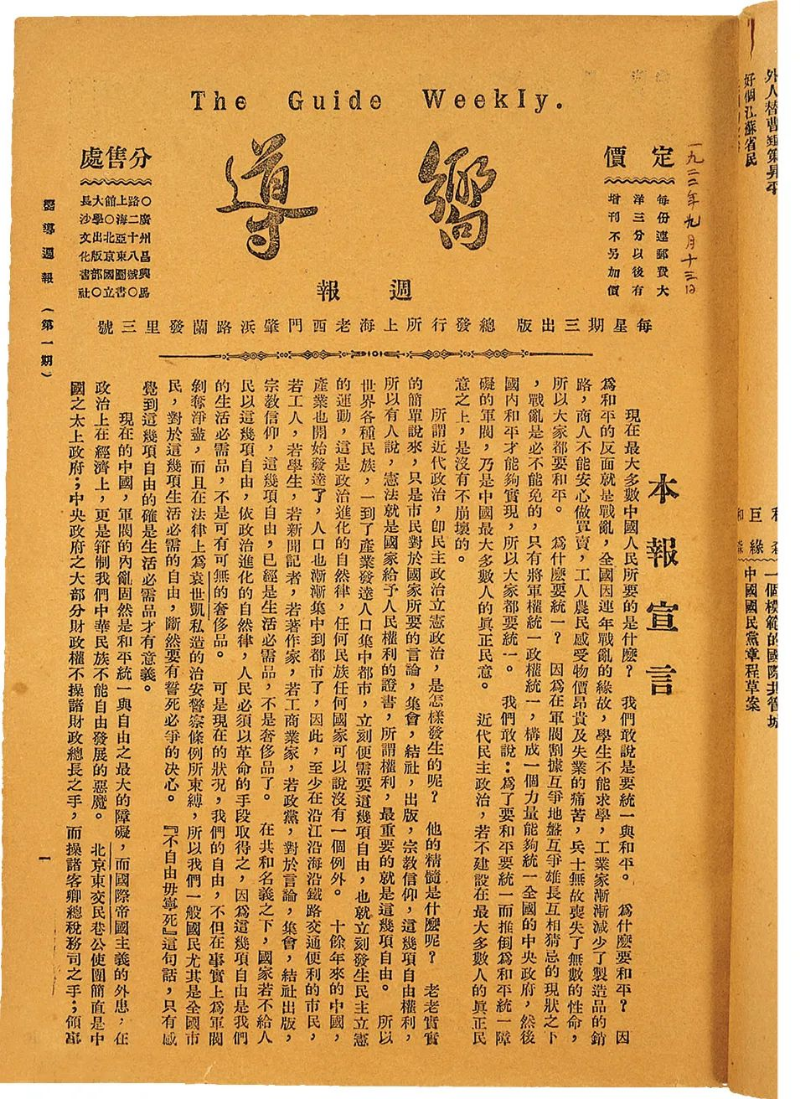 The Guide Weekly.
嚮導
週報
定價
每份連郵費大
洋三分以後有
增刊不另加價
一九二二年九月十三日
分售處
○廣州昌興馬
路二十八號○
上海亞東圖書
館○北京國立
大學出版部○
長沙文化書社
每星期三出版 總發行所上海老西門肇浜路蘭發里三號
嚮導週報 (第一期)
本報宣言
現在最大多數中國人民所要的是什麼? 我們敢說是要統一與和平。 爲什麼要和平? 因
爲和平的反面就是戰亂,全國因連年戰亂的緣故,學生不能求學,工業家漸漸減少了製造品的銷
路,商人不能安心做買賣,工人農民感受物價昂貴及失業的痛苦,兵士無故喪失了無數的性命,
所以大家都要和平。 爲什麼要統一? 因爲在軍閥割據互爭地盤互爭雄長互相猜忌的現狀之下
,戰亂是必不能免的,只有將軍權統一政權統一,構成一個力量能夠統一全國的中央政府,然後
國內和平才能夠實現,所以大家都要統一。 我們敢說:爲了要和平要統一而推倒爲和平統一障
礙的軍閥,乃是中國最大多數人的眞正民意。 近代民主政治,若不建設在最大多數人的眞正民
意之上,是沒有不崩壞的。
所謂近代政治,卽民主政治立憲政治,是怎樣發生的呢? 他的精髓是什麼呢? 老老實實
的簡單說來,只是市民對於國家所要的言論,集會,結社,出版,宗敎信仰,這幾項自由權利,
所以有人說,憲法就是國家給予人民權利的證書,所謂權利,最重要的就是這幾項自由。 所以
世界各種民族,一到了產業發達人口集中都市,立刻便需要這幾項自由,也就立刻發生民主立憲
的運動,這是政治進化的自然律,任何民族任何國家可以說沒有一個例外。 十餘年來的中國,
產業也開始發達了,人口也漸漸集中到都市了,因此,至少在沿江沿海沿鐵路交通便利的市民,
若工人,若學生,若新聞記者,若著作家,若工商業家,若政黨,對於言論,集會,結社,出版,
宗敎信仰,這幾項自由,已經是生活必需品,不是奢侈品了。 在共和名義之下,國家若不給人
民以這幾項自由,依政治進化的自然律,人民必須以革命的手段取得之,因爲這幾項自由是我們
的生活必需品,不是可有可無的奢侈品。 可是現在的狀況,我們的自由,不但在事實上爲軍閥
剝奪淨盡,而且在法律上爲袁世凱私造的治安警察條例所束縛,所以我們一般國民尤其是全國市
民,對於這幾項生活必需的自由,斷然要有誓死必爭的決心。 『不自由毋寧死』這句話,只有感
覺到這幾項自由的確是生活必需品才有意義。
現在的中國,軍閥的內亂固然是和平統一與自由之最大的障礙,而國際帝國主義的外患,在
政治上在經濟上,更是箝制我們中華民族不能自由發展的惡魔。 北京東交民巷公使團簡直是中
國之太上政府;中央政府之大部分財政權不操諸財政總長之手,而操諸客卿總稅務司之手;領
一
好個江蘇省民
巨緣
一個模範的國際共管城
中國國民黨章程草案